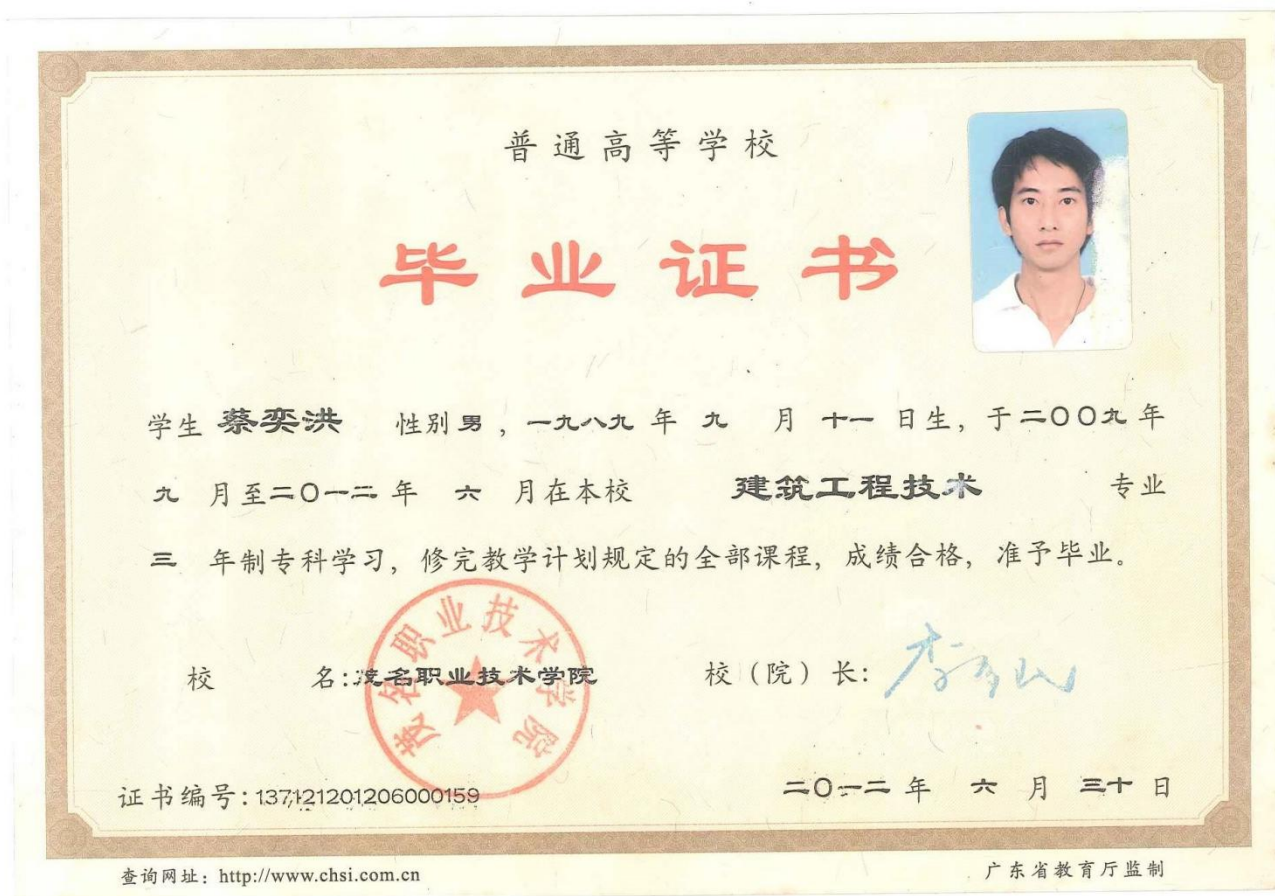 普通高等学校
毕业证书
学生 蔡奕洪 性别 男 , 一九八九 年 九 月 十一 日生, 于 二〇〇九 年
九 月至 二〇一二 年 六 月在本校 建筑工程技术 专业
三 年制专科学习, 修完教学计划规定的全部课程, 成绩合格, 准予毕业。
茂名职业技术学院
校 名: 茂名职业技术学院 校(院)长:
证书编号: 137121201206000159 二〇一二 年 六 月 三十 日
查询网址: http://www.chsi.com.cn 广东省教育厅监制